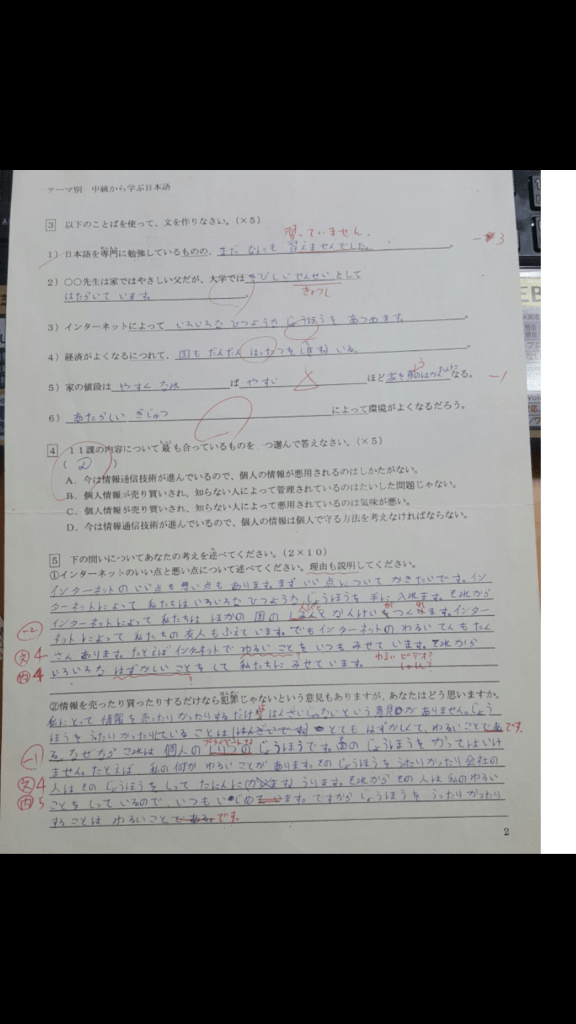 テーマ別 中級から学ぶ日本語
3 以下のことばを使って、文を作りなさい。(×5)
習っていません。
1) 日本語を専門に勉強しているものの、まだ なにも 習えませんでした。
-3
2) ○○先生は家ではやさしい父だが、大学ではきびしい せんせい として
はたらいて います。
きょうし
3) インターネットによって いろいろな ひつような じょうほうを あつめます。
4) 経済がよくなるにつれて、国も だんだん はったつを して いる。
5) 家の値段は やすく なれ ば やすい ほど なる。
-1
6) あたらしい ぎじゅつ によって環境がよくなるだろう。
4 11課の内容について最も合っているものを一つ選んで答えなさい。(×5)
( D )
A. 今は情報通信技術が進んでいるので、個人の情報が悪用されるのはしかたがない。
B. 個人情報が売り買いされ、知らない人によって管理されているのはたいした問題じゃない。
C. 個人情報が売り買いされ、知らない人によって悪用されているのは気味が悪い。
D. 今は情報通信技術が進んでいるので、個人の情報は個人で守る方法を考えなければならない。
5 下の問いについてあなたの考えを述べてください。(2×10)
①インターネットのいい点と悪い点について述べてください。理由も説明してください。
インターネットの いい点も 悪い点も あります。まず いい点について かきたいです。イン
ターネットによって 私たちは いろいろな ひつような じょうほうを 手に 入れます。それから
インターネットによって 私たちは ほかの 国の かんけいを つくれます。インター
-2
ネットによって 私たちの 友人も ふえて います。でも インターネットの わるい てんも たく
文4
さん あります。たとえば インターネットで わるい ことを いつも みせて います。それから
内4
いろいろな はずかしい ことを して 私たちに みせて います。
わるい ビデオ?
②情報を売ったり買ったりするだけなら犯罪じゃないという意見もありますが、あなたはどう思いますか。
私にとって 情報を 売ったり かったりする だけ はんざいじゃないという 意見が ありません。じょう
ほうを うたり かったりている ことは はんざいです。とても はずかしくて、わるい ことです。
-1
なぜなら これは 個人の じょうほうです。 じょうほうを かってはいけ
ません。たとえば 私の 何か わるい ことが あります。その じょうほうを うたり かったり 会社の
文4
人は その じょうほうを しって たにんに うります。それから その 人は 私の わるい
内5
ことを しって いるので、いつも いじめ ます。ですから じょうほうを うったり かったり
する ことは わるい ことです。
2